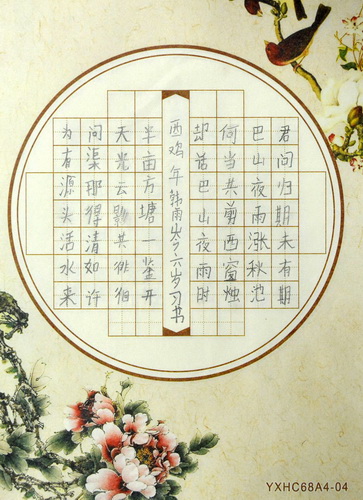 君问归期未有期
巴山夜雨涨秋池
何当共剪西窗烛
却话巴山夜雨时
酉鸡年韩雨岑六岁习书
半亩方塘一鉴开
天光云影共徘徊
问渠那得清如许
为有源头活水来
YXHC68A4-04